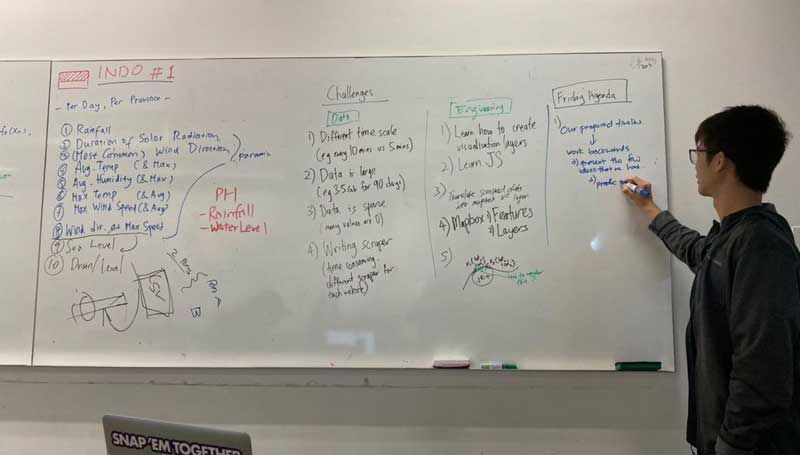 INDO #1
- Per Day, Per Province -
① Rainfall
② Duration of Solar Radiation
③ (Most Common) Wind Direction
④ Avg. Temp (& Max)
⑤ Avg. Humidity (& Max)
⑥ Max Temp (& Avg)
⑦ Max Wind Speed (& Avg)
⑧ Wind dir. at Max Speed
⑨ Sea Level
⑩ Drain/Level
params
PH
- Rainfall
- Water Level
CSV
Challenges
Data
1) Different time scale
(eg every 10 mins vs 5 mins)
2) Data is large
(eg 3.5 Gb for 90 days)
3) Data is sparse
(many values are 0)
4) Writing scraper
(time consuming,
different scraper for
each website)
Engineering
1) Learn how to create
visualisation layers
2) Learn JS
3)
4) Mapbox Features
Layers
5)
Friday Agenda
1) Our proposed timeline
work backwards
present the few
ideas that we have
SNAP 'EM TOGETHER